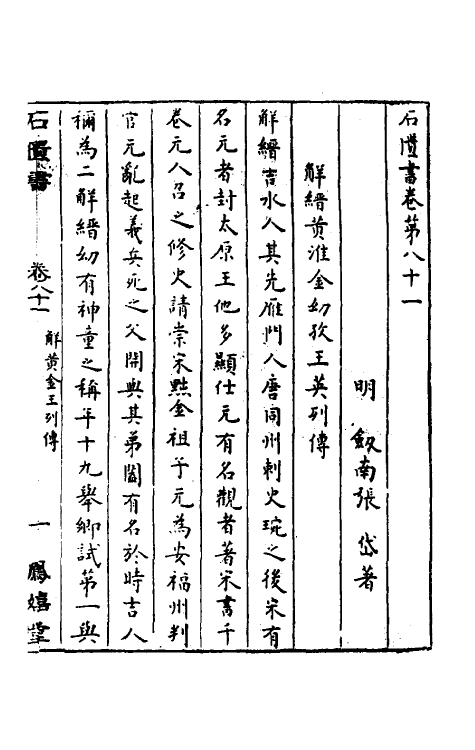 石匱書卷第八十一
明 劔南張岱著
解縉黄淮金幼孜王英列傳
解縉吉水人其先雁門人唐同州刺史琬之後宋有
名元者封太原王他多顯仕元有名觀者著宋書千
卷元人召之修史請崇宋黜金祖子元為安福州判
官元亂起義兵死之父開與其弟闔有名於時吉人
稱為二解縉幼有神童之稱年十九舉鄉試第一與
石匱書 卷八十一 解黄金王列傳 一 鳳嬉堂